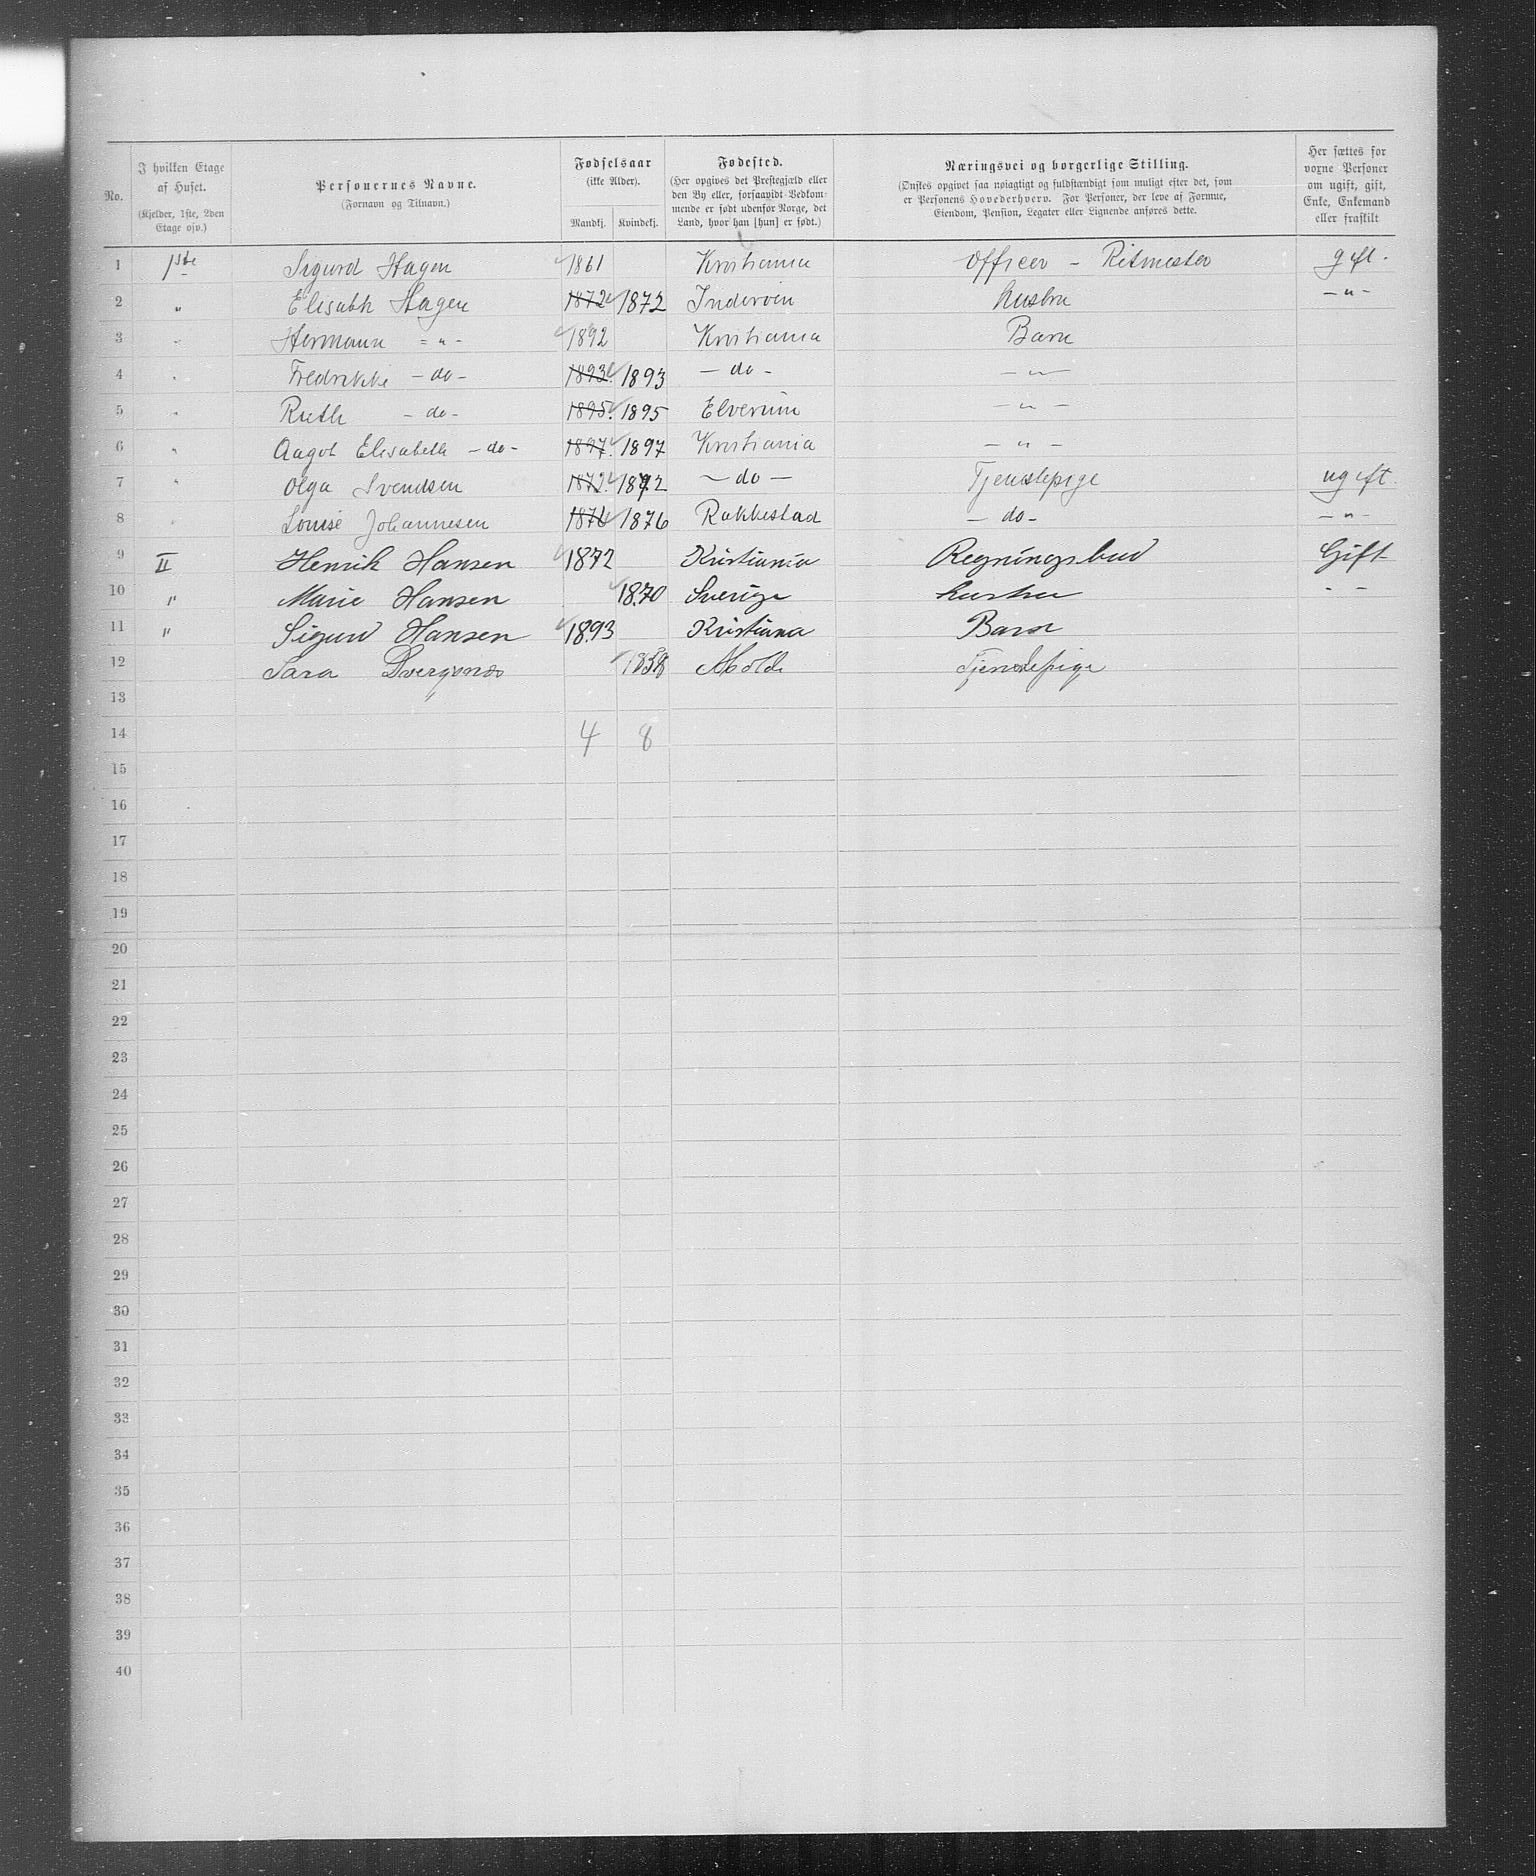 No. | I hvilken Etage af Huset. (Kjelder, 1ste, 2den Etage osv.) | Personernes Navne. (Fornavn og Tilnavn.) | Fødselsaar (ikke Alder). Mandkj. | Kvindekj. | Fødested. (Her opgives det Prestegjæld eller den By eller, forsaavidt Vedkommende er født udenfor Norge, det Land, hvor han [hun] er født.) | Næringsvei og borgerlige Stilling. (Ønskes opgivet saa nøiagtigt og fuldstændigt som muligt efter det, som er Personens Hovederhverv. For Personer, der leve af Formue, Eiendom, Pension, Legater eller Lignende anføres dette. | Her sættes for voxne Personer om ugift, gift, Enke, Enkemand eller fraskilt
1 | 1ste | Sigurd Hagen | 1861 | | Kristiania | Officer - Ritmester | gift.
2 | " | Elisabth Hagen | 1872 | 1872 | Inderøen | Hustru | - " -
3 | " | Hermann = " - | 1892 | | Kristiania | Barn
4 | " | Fredrikke - do - | 1893 | 1893 | - do - | - " -
5 | " | Ruth - do - | 1895 | 1895 | Elverum | - " -
6 | " | Aagot Elisabeth - do - | 1897 | 1897 | Kristiania | - " -
7 | " | Olga Svendsen | 1872 | 1872 | - do - | Tjenstepige | ugift.
8 | " | Louise Johannesen | 1876 | 1876 | Rakkestad | - do - | - " -
9 | II | Henrik Hansen | 1872 | | Kristiania | Regningsbud | Gift
10 | " | Marie Hansen | | 1870 | Sverige | hustru | - -
11 | " | Sigurd Hansen | 1893 | | Kristiana | Barn
12 | Sara | | 1858 | Molde | Tjenstepige
13
14 | 4 | 8
15
16
17
18
19
20
21
22
23
24
25
26
27
28
29
30
31
32
33
34
35
36
37
38
39
40